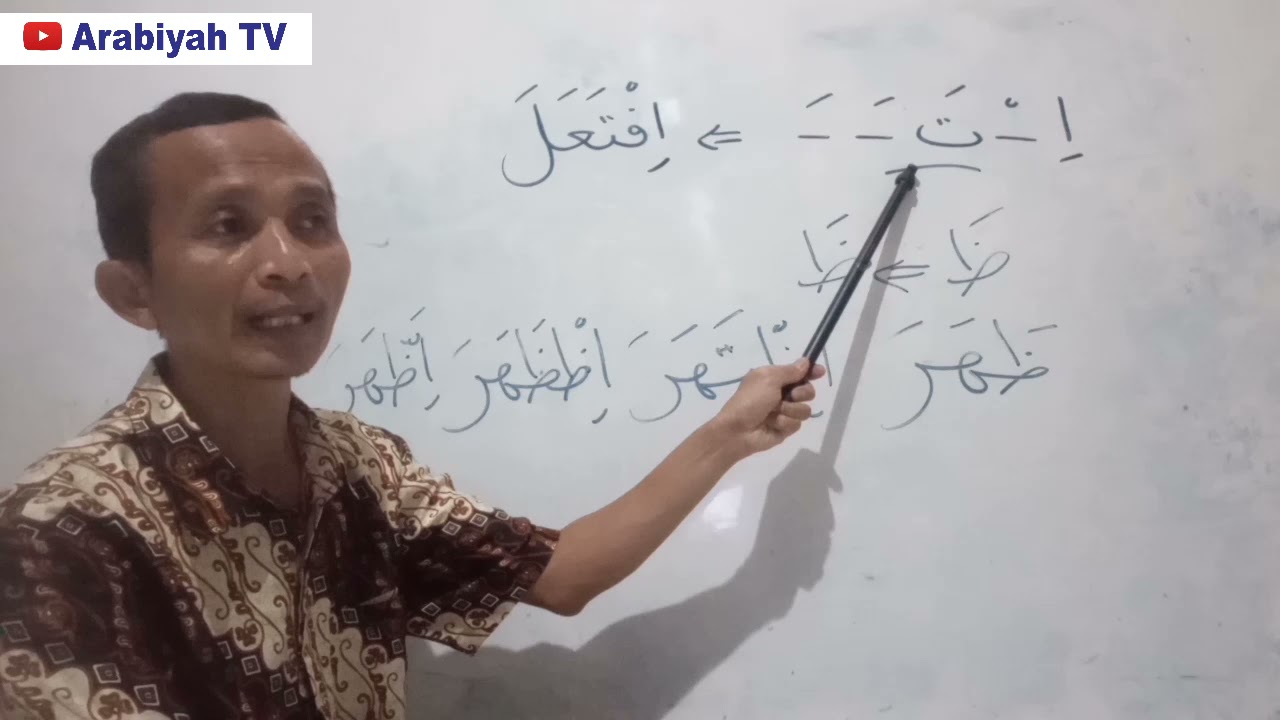 Arabiyah TV
اِ – ْ تَ – َ – َ ⇐ اِفْتَعَلَ
ظَ ⇐ ظَ
ظَهَرَ اِظْتَهَرَ اِظْظَهَرَ اِظَّهَرَ